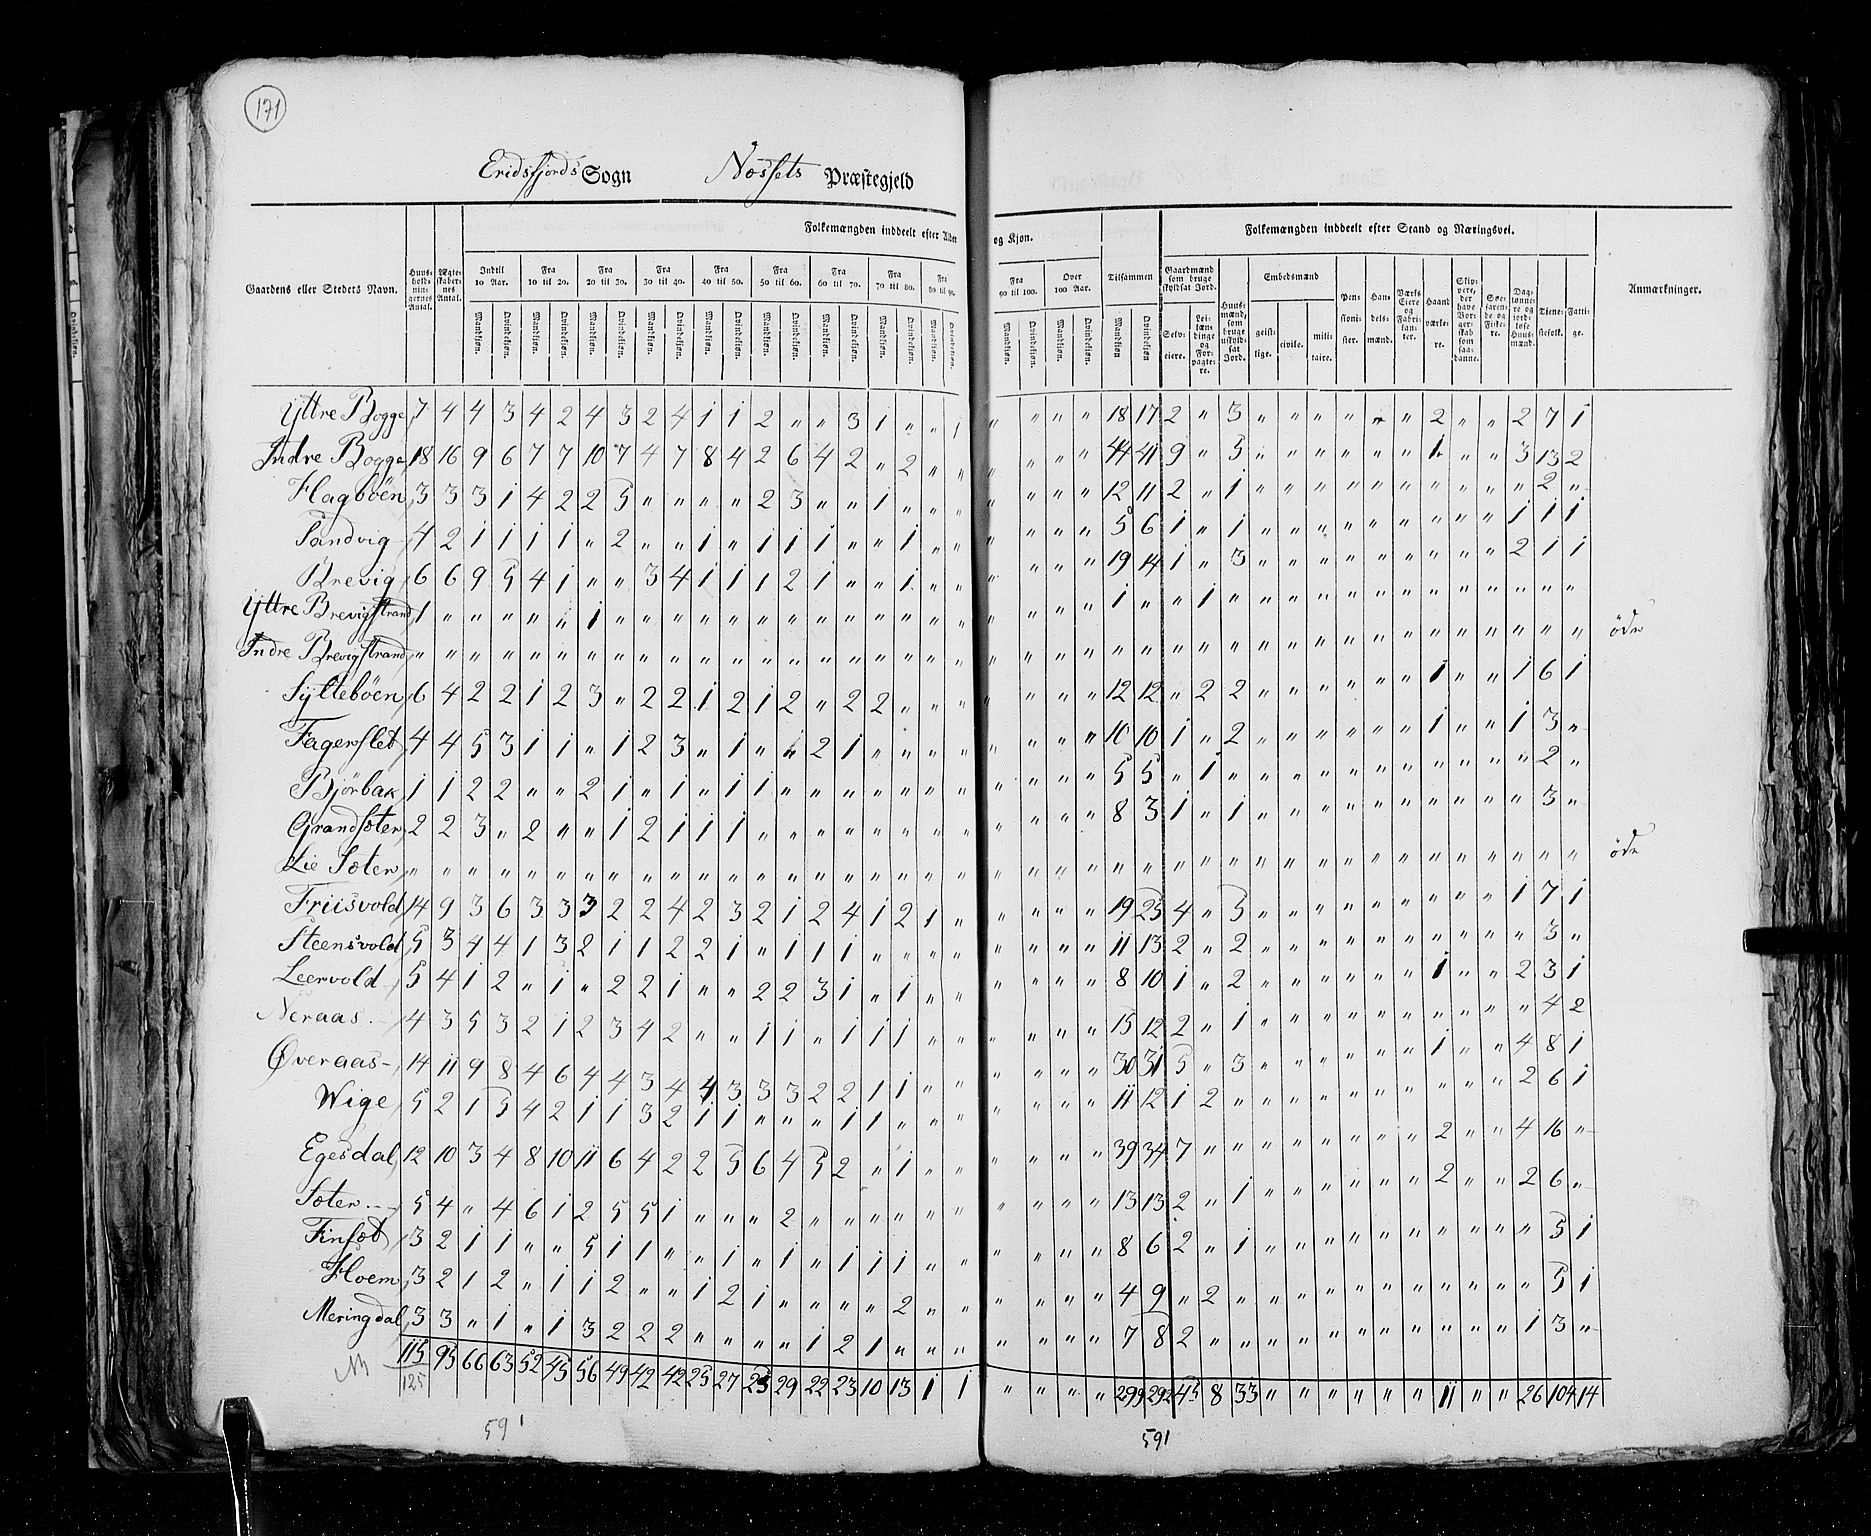 171
Eridsfjords Sogn Nessets Præstegjeld
Folkemængden inddeelt efter Alder og Kjøn. Folkemængden inddeelt efter Stand og Næringsvei.
Gaardens eller Steders Navn. Huusholdningernes Antal. Ægteskabernes Antal. Indtil 10 Aar. Fra 10 til 20. Fra 20 til 30. Fra 30 til 40. Fra 40 til 50. Fra 50 til 60. Fra 60 til 70. Fra 70 til 80. Fra 80 til 90. Fra 90 til 100. Over 100 Aar. Tilsammen Gaardmænd som bruge skyldsat Jord. Huusmænd, som bruge uskyldsat Jord. Embedsmænd Pensionister. Handelsmænd. Værks Eiere og Fabrikanter. Haandværkere. Skippere, der have Borgerskab som saadanne. Søefarende og Fiskere. Daglønnere og jordløse Huusmænd. Tjenestefolk. Fattige. Anmærkninger.
Mandkjøn. Qvindekjøn. Mandkjøn. Qvindekjøn. Mandkjøn. Qvindekjøn. Mandkjøn. Qvindekjøn. Mandkjøn. Qvindekjøn. Mandkjøn. Qvindekjøn. Mandkjøn. Qvindekjøn. Mandkjøn. Qvindekjøn. Mandkjøn. Qvindekjøn. Mandkjøn. Qvindekjøn. Mandkjøn. Qvindekjøn. Mandkjøn Qvindekjøn Selveiere. Leilændinge og Forpagtere. geistlige. civile. militaire.
Yttre Bogge 7 4 4 3 4 2 4 3 2 4 1 1 2 " " 3 1 " " 1 " " " " 18 17 2 " 3 " " " " " " 2 " " 2 7 1
Indre Bogge 18 16 9 6 7 7 10 7 4 7 8 4 2 6 4 2 " 2 " " " " " " 44 41 9 " 5 " " " " " " 1 " " 3 13 2
Flagböen 3 3 3 1 4 2 2 5 " " " " 2 3 " " 1 " " " " " " " 12 11 2 " 1 " " " " " " " " " " 2 "
Sandvig 4 2 1 1 1 1 " 2 " " 1 " 1 1 1 " " 1 " " " " " " 5 6 1 " 1 " " " " " " " " " 1 1 1
Brevig 6 6 9 5 4 1 " " 3 4 1 1 1 2 1 " " 1 " " " " " " 19 14 1 " 3 " " " " " " " " " 2 1 1
Yttre Brevigstrand 1 " " " " " 1 " " " " " " " " " " " " " " " " " 1 " " 1 " " " " " " " " " " " " "
Indre Brevigstrand " " " " " " " " " " " " " " " " " " " " " " " " " " " " " " " " " " " " " " " " " öde
Sylteböen 6 4 2 2 1 2 3 " 2 2 1 2 1 2 " 2 2 " " " " " " " 12 12 " 2 2 " " " " " " 1 " " 1 6 1
Fagerslet 4 4 5 3 1 1 " 1 2 3 " 1 " " 2 1 " " " " " " " " 10 10 1 " 2 " " " " " " 1 " " 1 3 "
Björbak 1 1 2 2 " " 2 1 " 1 " 1 1 " " " " " " " " " " " 5 5 " 1 " " " " " " " " " " " 2 "
Grandsæter 2 2 3 " 2 " " 1 2 1 1 1 " " " " " " " " " " " " 8 3 1 " 1 " " " " " " " " " " 3 "
Lie Sæter " " " " " " " " " " " " " " " " " " " " " " " " " " " " " " " " " " " " " " " " " öde
Friisvold 14 9 3 6 3 3 3 2 2 4 2 3 2 1 2 4 1 2 1 " " " " " 19 25 4 " 3 " " " " " " " " " 1 7 1
Steensvold 5 3 4 4 1 3 2 1 1 2 2 1 " 1 1 1 " " " " " " " " 11 13 2 " 2 " " " " " " " " " " 3 "
Leervold 5 4 1 2 " 1 " 2 2 1 " " 2 2 3 1 " 1 " " " " " " 8 10 1 " 2 " " " " " " 1 " " 2 3 1
Neraas 4 3 5 3 2 1 2 3 4 2 " " 1 1 " 1 1 1 " " " " " " 15 12 2 " 1 " " " " " " " " " " 4 2
Øveraas 14 11 9 8 4 6 4 4 3 4 4 3 3 3 2 2 1 1 " " " " " " 30 31 5 " 3 " " " " " " 1 " " 4 8 1
Wige 5 2 1 5 4 2 1 1 3 2 1 1 " " " 1 1 " " " " " " " 11 12 1 2 " " " " " " " " " " 2 6 1
Egesdal 12 10 3 4 8 10 11 6 4 2 2 5 6 4 5 2 " 1 " " " " " " 39 34 7 " " " " " " " " 2 " " 4 16 "
Sæter 5 4 " 4 6 1 2 5 5 1 " " " 2 " " " " " " " " " " 13 13 2 " 1 " " " " " " 2 " " 2 6 "
Finsæt 3 2 1 1 " " 5 1 1 " " 1 " 1 " 1 1 1 " " " " " " 8 6 2 " 1 " " " " " " " " " " 5 1
Hoem 3 2 1 2 " 1 1 2 " " 1 2 1 " " " " 2 " " " " " " 4 9 " 2 " " " " " " " " " " " 5 1
Meringdal 3 3 " 1 " 1 3 2 2 2 " " " " 1 2 1 " " " " " " " 7 8 2 " " " " " " " " " " " 1 3 "
115 95 66 63 52 45 56 49 42 42 25 27 25 29 22 23 10 13 1 1 " " " " 299 292 45 8 33 " " " " " " 11 " " 26 104 14
125
591 591